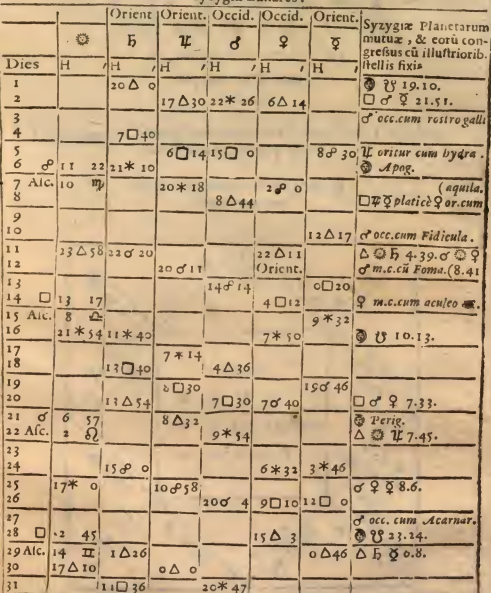 Orient Orient. Occid. Occid. Orient.
Syzygiæ Planetarum mutuæ, & eorū congresſus cū illuſtriorib. ſtellis fixis
☉ ♄ ♃ ♂ ♀ ☿
Dies H ′ H ′ H ′ H ′ H ′ H ′
1 20 △ 0 ☋ 19.10.
2 17 △ 30 22 * 26 6 △ 14 □ ♂ ☿ 21.51.
3 ♂ occ.cum roſtro galli
4 7 □ 40
5 6 □ 14 15 □ 0 8 ☍ 30 ♃ oritur cum hydra.
6 ☍ 11 22 21 * 10 Apog.
7 Aſc. 10 ♏ 20 * 18 2 ☍ 0 (aquila.
8 8 △ 44 □ ♃ ☿ platicè ♀ or.cum
9
10 12 △ 17 ♂ occ.cum Fidicula.
11 23 △ 58 22 ☌ 20 22 △ 11 △ ☉ ♄ 4.39. ☌ ☉ ♀
12 20 ☌ 11 Orient. ♂ m.c.cū Foma.(8.41
13 14 ☍ 14 0 □ 20
14 □ 13 17 4 □ 12 ♀ m.c.cum aculeo
15 Aſc. 8 ♎ 9 * 32
16 21 * 54 11 * 40 7 * 50 10.13.
17 7 * 14
18 13 □ 40 4 △ 36
19 8 □ 30 19 ☌ 46
20 13 △ 54 7 □ 30 7 ☌ 40 □ ♂ ♀ 7.33.
21 ☌ 6 57 8 △ 32 Perig.
22 Aſc. 2 ♌ 9 * 54 △ ☉ ♃ 7.45.
23
24 15 ☍ 0 6 * 32 3 * 46
25 17 * 0 10 ☍ 58 ☌ ♀ ☿ 8.6.
26 20 ☌ 4 9 □ 10 12 □ 0
27 ♂ occ. cum Acarnar.
28 □ 2 45 15 △ 3 23.24.
29 Aſc. 14 ♊ 1 △ 26 0 △ 46 △ ♄ ☿ 0.8.
30 17 △ 10 0 △ 0
31 11 □ 36 20 * 47